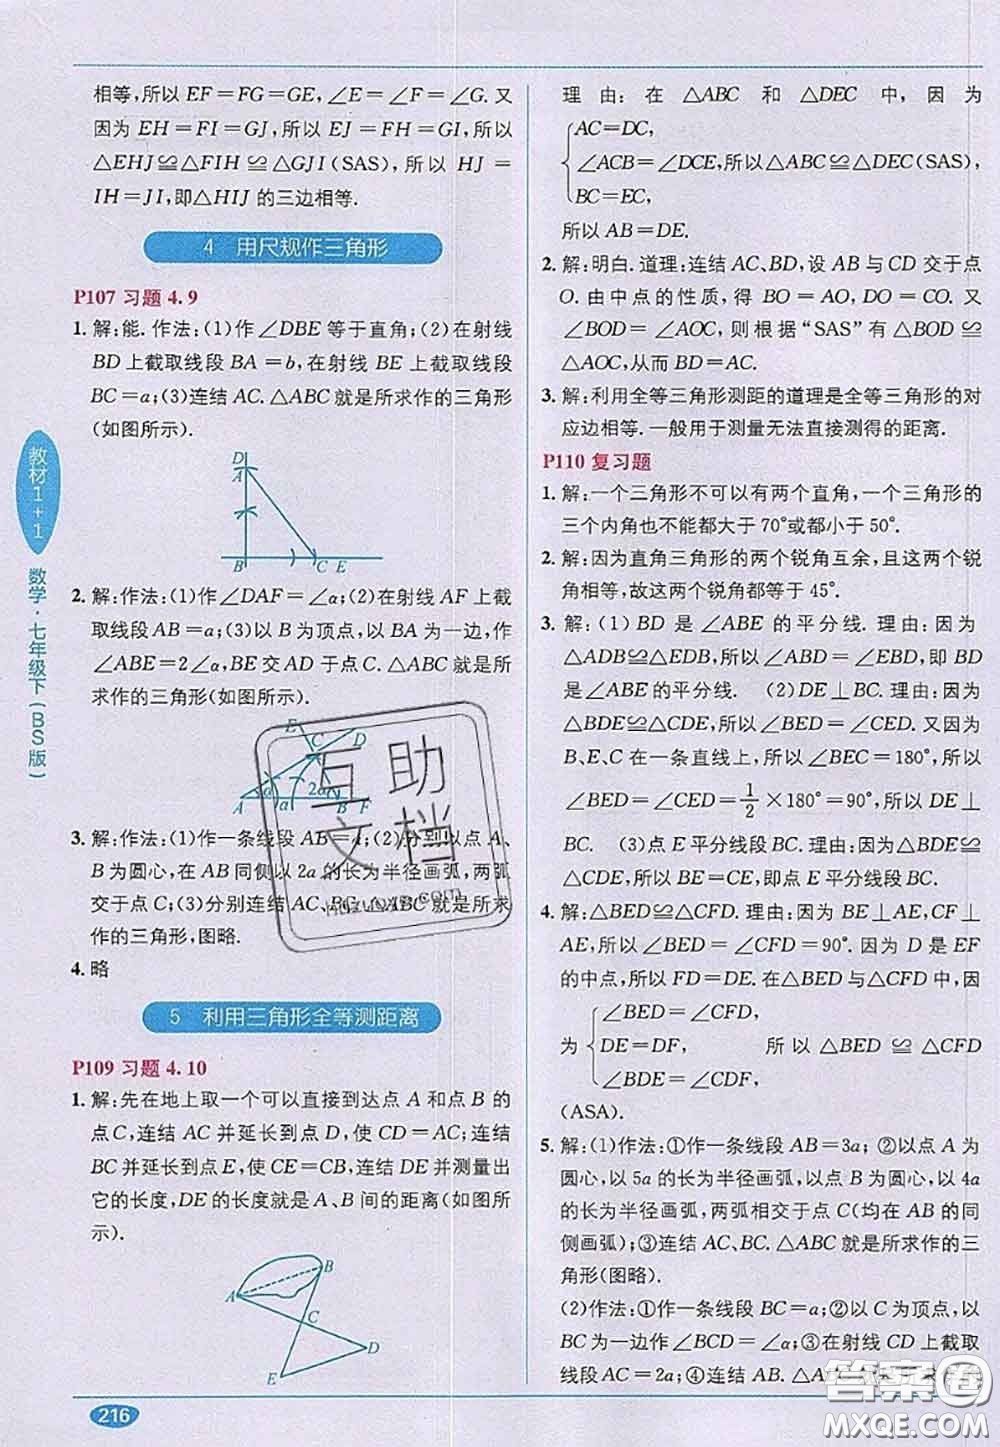 相等,所以 EF=FG=GE,∠E=∠F=∠G. 又
因为 EH=FI=GJ,所以 EJ=FH=GI,所以
△EHJ≌△FIH≌△GJI(SAS),所以 HJ=
IH=JI,即△HIJ 的三边相等.
4 用尺规作三角形
P107 习题 4.9
1. 解:能. 作法:(1)作∠DBE 等于直角;(2)在射线
BD 上截取线段 BA=b,在射线 BE 上截取线段
BC=a;(3)连结 AC. △ABC 就是所求作的三角形
(如图所示).
D
A
B C E
2. 解:作法:(1)作∠DAF=∠α;(2)在射线 AF 上截
取线段 AB=a;(3)以 B 为顶点,以 BA 为一边,作
∠ABE=2∠α,BE 交 AD 于点 C. △ABC 就是所
求作的三角形(如图所示).
E C D
α 2α
A a B F
3. 解:作法:(1)作一条线段 AB=a;(2)分别以点 A、
B 为圆心,在 AB 同侧以 2a 的长为半径画弧,两弧
交于点 C;(3)分别连结 AC、BC. △ABC 就是所求
作的三角形,图略.
4. 略
5 利用三角形全等测距离
P109 习题 4.10
1. 解:先在地上取一个可以直接到达点 A 和点 B 的
点 C,连结 AC 并延长到点 D,使 CD=AC;连结
BC 并延长到点 E,使 CE=CB,连结 DE 并测量出
它的长度,DE 的长度就是 A、B 间的距离(如图所
示).
B
A
C
D
E
理由:在 △ABC 和 △DEC 中,因为
AC=DC,
∠ACB=∠DCE,所以△ABC≌△DEC(SAS),
BC=EC,
所以 AB=DE.
2. 解:明白. 道理:连结 AC、BD,设 AB 与 CD 交于点
O. 由中点的性质,得 BO=AO,DO=CO. 又
∠BOD=∠AOC,则根据“SAS”有△BOD≌
△AOC,从而 BD=AC.
3. 解:利用全等三角形测距的道理是全等三角形的对
应边相等. 一般用于测量无法直接测得的距离.
P110 复习题
1. 解:一个三角形不可以有两个直角,一个三角形的
三个内角也不能都大于 70°或都小于 50°.
2. 解:因为直角三角形的两个锐角互余,且这两个锐
角相等,故这两个锐角都等于 45°.
3. 解:(1)BD 是∠ABE 的平分线. 理由:因为
△ADB≌△EDB,所以∠ABD=∠EBD,即 BD
是∠ABE 的平分线. (2)DE⊥BC. 理由:因为
△BDE≌△CDE,所以∠BED=∠CED. 又因为
B、E、C 在一条直线上,所以∠BEC=180°,所以
∠BED=∠CED=1/2×180°=90°,所以 DE⊥
BC. (3)点 E 平分线段 BC. 理由:因为△BDE≌
△CDE,所以 BE=CE,即点 E 平分线段 BC.
4. 解:△BED≌△CFD. 理由:因为 BE⊥AE,CF⊥
AE,所以∠BED=∠CFD=90°. 因为 D 是 EF
的中点,所以 FD=DE. 在△BED 与△CFD 中,因
∠BED=∠CFD,
为 DE=DF, 所以△BED≌△CFD
∠BDE=∠CDF,
(ASA).
5. 解:(1)作法:①作一条线段 AB=3a;②以点 A 为
圆心,以 5a 的长为半径画弧,以点 B 为圆心,以 4a
的长为半径画弧,两弧相交于点 C(均在 AB 的同
侧画弧);③连结 AC、BC. △ABC 就是所求作的三
角形(图略).
(2)作法:①作一条线段 BC=a;②以 C 为顶点,以
BC 为一边作∠BCD=∠α;③在射线 CD 上截取
线段 AC=2a;④连结 AB. △A
教材1+1 数学·七年级下(BS版)
216
互助
文档
答案圈
MXQE.COM